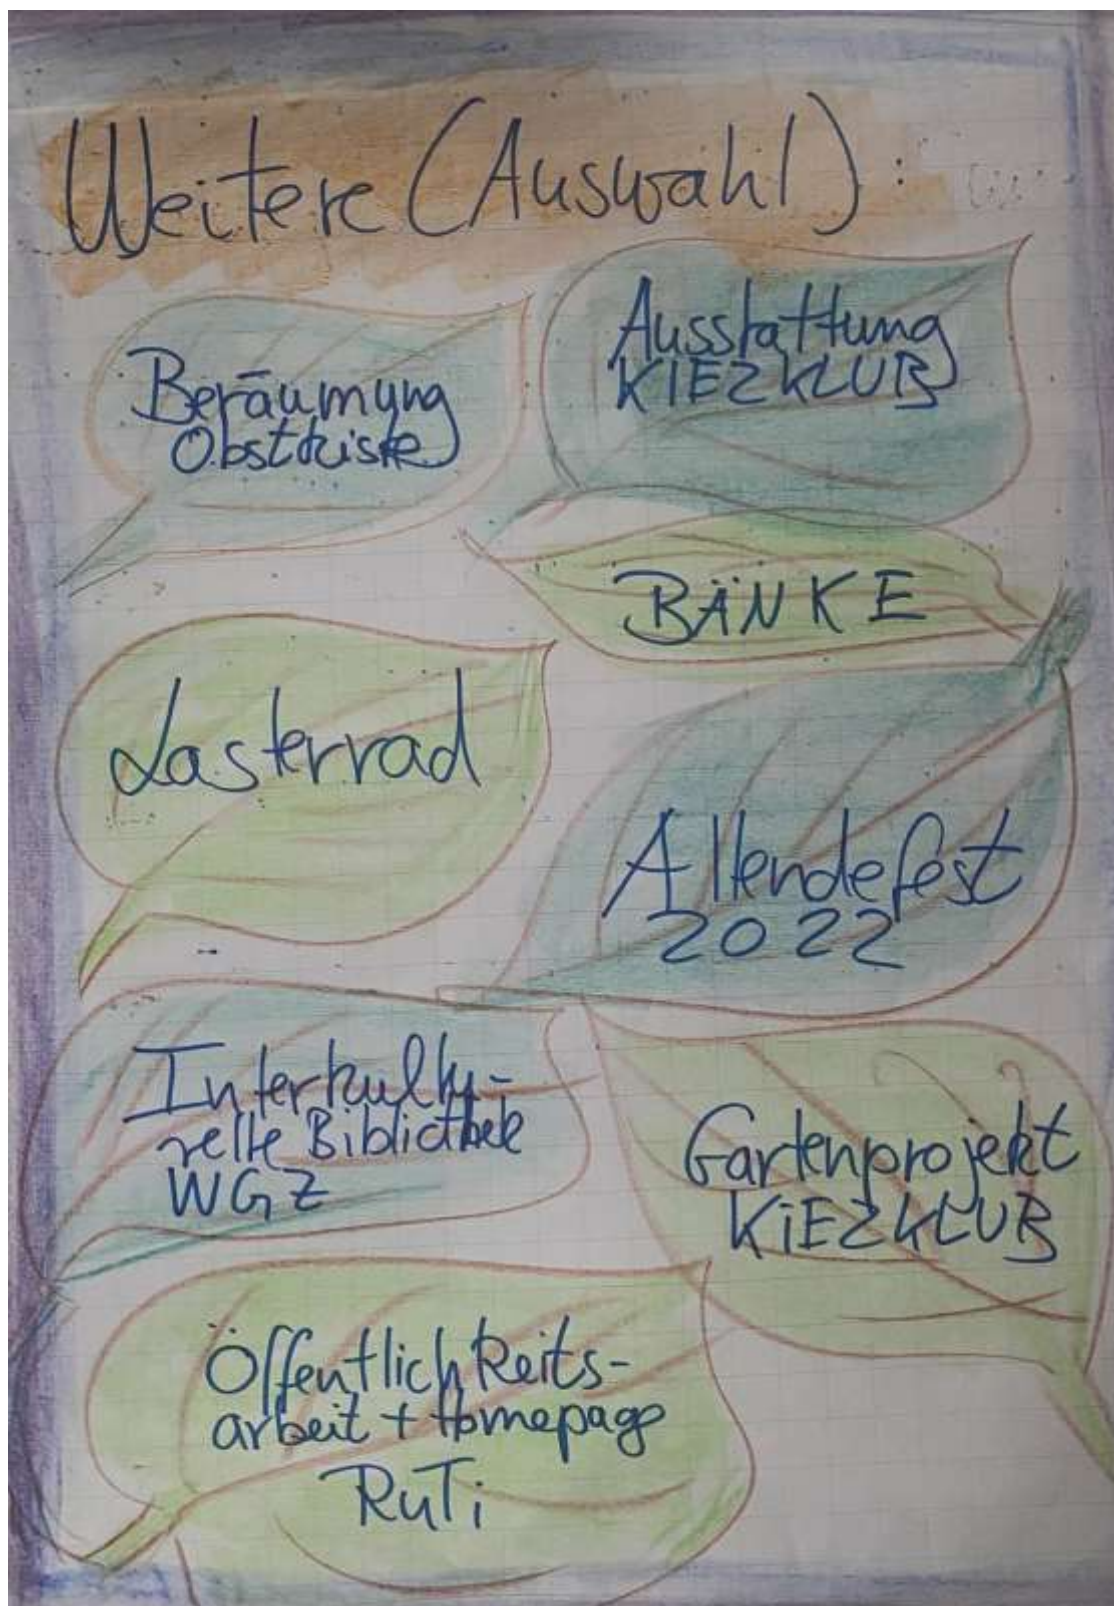 Weitere (Auswahl):
Beräumung
Obstkiste
Ausstattung
KIEZKLUB
BÄNKE
Lasterrad
Allendefest
2022
Interkultu-
relle Bibliothek
WGZ
Gartenprojekt
KiEZKLUB
Öffentlichkeits-
arbeit + Homepage
RuTi